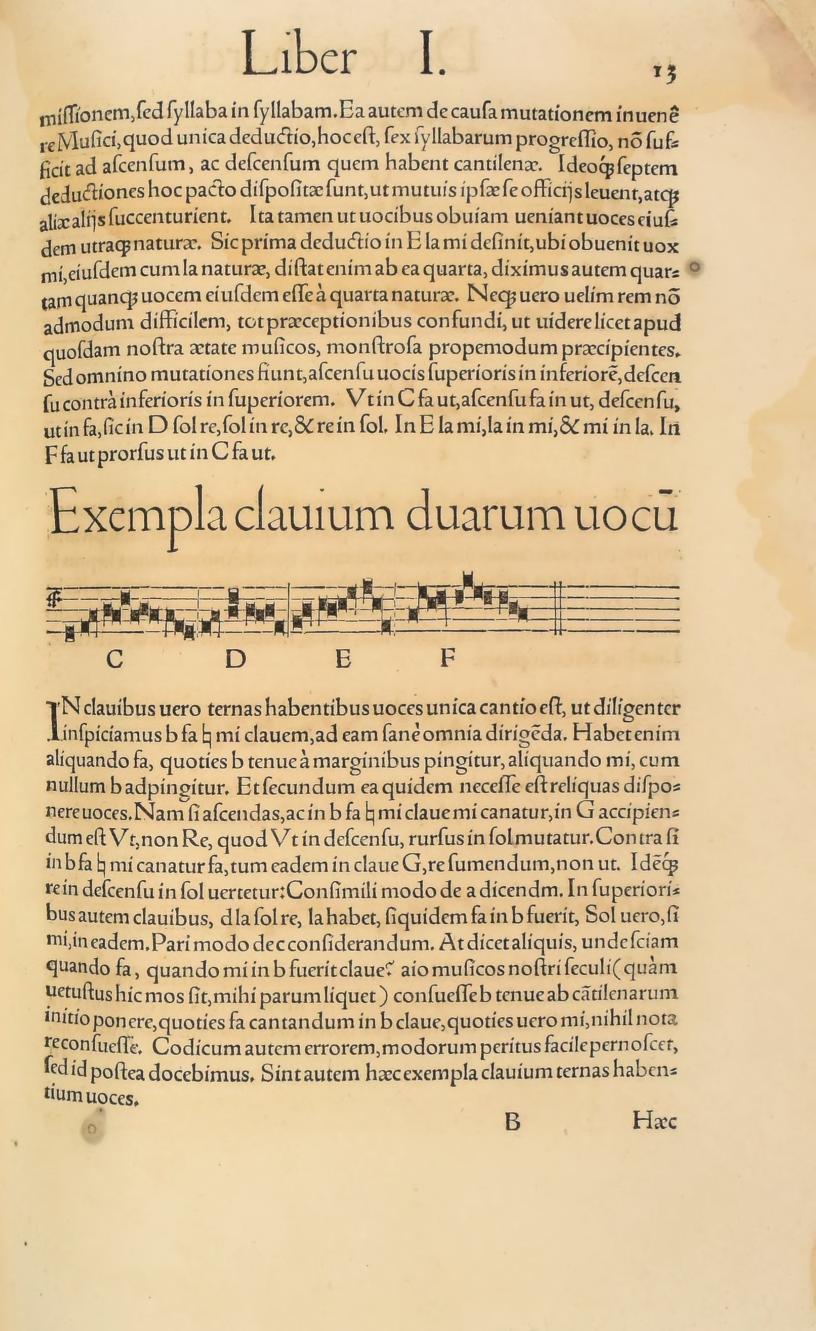 Liber I. 13
miſſionem, ſed ſyllaba in ſyllabam. Ea autem de cauſa mutationem inuenê
re Muſici, quod unica deductio, hoc eſt, ſex ſyllabarum progreſſio, nõ ſuf⸗
ficit ad aſcenſum, ac deſcenſum quem habent cantilenæ. Ideoq́ꝫ ſeptem
deductiones hoc pacto diſpoſitæ ſunt, ut mutuis ipſæ ſe officijs leuent, atqꝫ
aliæ alijs ſuccenturient. Ita tamen ut uocibus obuiam ueniant uoces eiuſ⸗
dem utraqꝫ naturæ. Sic prima deductio in E la mi definit, ubi obuenit uox
mi, eiuſdem cum la naturæ, diſtat enim ab ea quarta, diximus autem quar⸗
tam quanqꝫ uocem eiuſdem eſſe à quarta naturæ. Neqꝫ uero uelim rem nõ
admodum difficilem, tot præceptionibus confundi, ut uidere licet apud
quoſdam noſtra ætate muſicos, monſtroſa propemodum præcipientes.
Sed omnino mutationes fiunt, aſcenſu uocis ſuperioris in inferiorẽ, deſcen
ſu contrà inferioris in ſuperiorem. Vt in C fa ut, aſcenſu fa in ut, deſcenſu,
ut in fa, ſic in D ſol re, ſol in re, & re in ſol. In E la mi, la in mi, & mi in la. In
F fa ut prorſus ut in C fa ut.
Exempla clauium duarum uocū
C D E F
IN clauibus uero ternas habentibus uoces unica cantio eſt, ut diligenter
inſpiciamus b fa ♮ mi clauem, ad eam ſanè omnia dirigẽda. Habet enim
aliquando fa, quoties b tenue à marginibus pingitur, aliquando mi, cum
nullum b adpingitur. Et ſecundum ea quidem neceſſe eſt reliquas diſpo⸗
nere uoces. Nam ſi aſcendas, ac in b fa ♮ mi claue mi canatur, in G accipien⸗
dum eſt Vt, non Re, quod Vt in deſcenſu, rurſus in ſol mutatur. Contra ſi
in b fa ♮ mi canatur fa, tum eadem in claue G, re ſumendum, non ut. Idẽq́ꝫ
re in deſcenſu in ſol uertetur: Conſimili modo de a dicendm. In ſuperiori⸗
bus autem clauibus, d la ſol re, la habet, ſiquidem fa in b fuerit, Sol uero, ſi
mi, in eadem. Pari modo de c conſiderandum. At dicet aliquis, unde ſciam
quando fa, quando mi in b fuerit claue? aio muſicos noſtri ſeculi (quàm
uetuſtus hic mos ſit, mihi parum liquet) conſueſſe b tenue ab cãtilenarum
initio ponere, quoties fa cantandum in b claue, quoties uero mi, nihil nota
re conſueſſe. Codicum autem errorem, modorum peritus facile pernoſcet,
ſed id poſtea docebimus. Sint autem hæc exempla clauium ternas haben⸗
tium uoces.
B Hæc